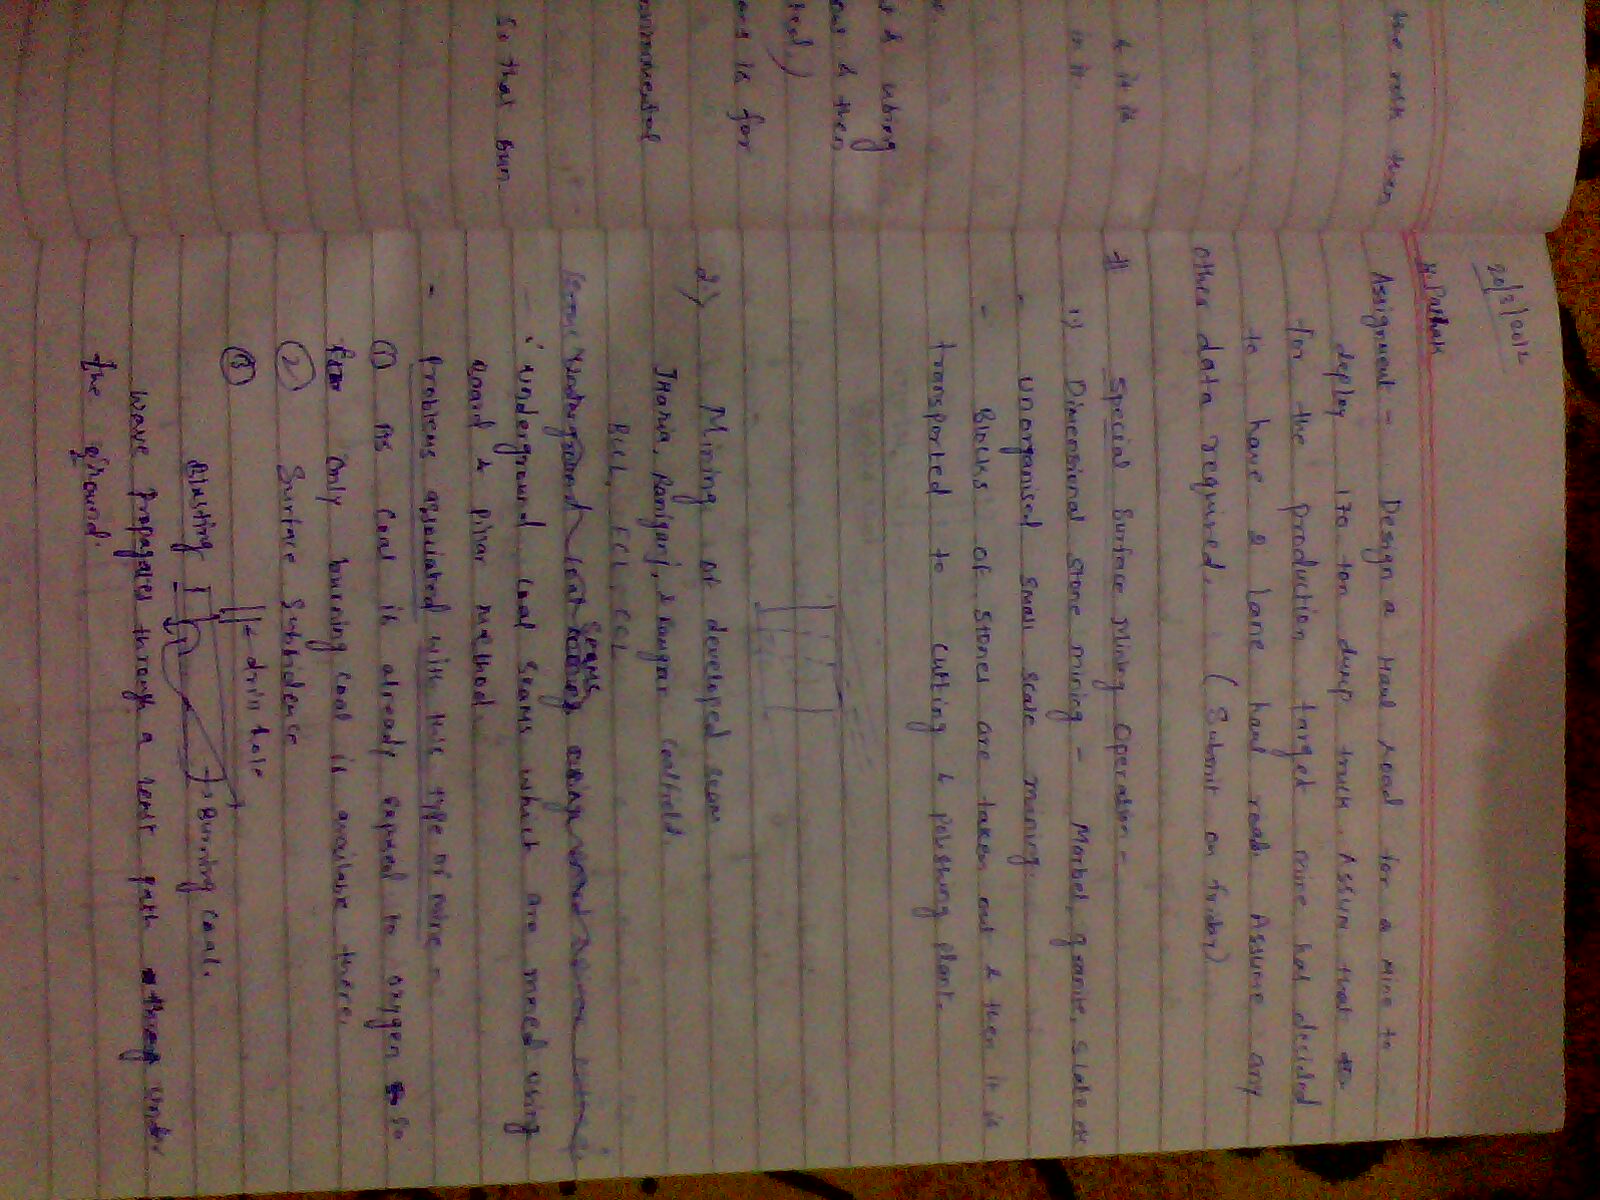 20/3/2012
K. Pathak
Assignment - Design a Haul road for a mine to
deploy 170 ton dump truck. Assum that
for the production target mine had decided
to have 2 lane haul road. Assume any
other data required. (Submit on friday)
# Special Surface Mining Operation -
1) Dimensional stone mining - Marbel, granite, slate etc
- unorganised small scale mining.
- Blocks of stones are taken out & then it is
transported to cutting & polishing plant.
2) Mining of developed seam
Jharia, Raniganj, & Kamgar coalfield.
BCCL, ECL, CCL
- underground coal seams which are mined using
board & pillar method.
- Problems associated with this type of mine -
① As coal is already exposed to oxygen so
only burning coal is availabe there.
② Surface Subsidence
③
drill hole
Blasting
Burning coal.
wave propagates through a least path under
the ground.
the rock then
& it is
in it.
& using
& then
is for
So that Burn